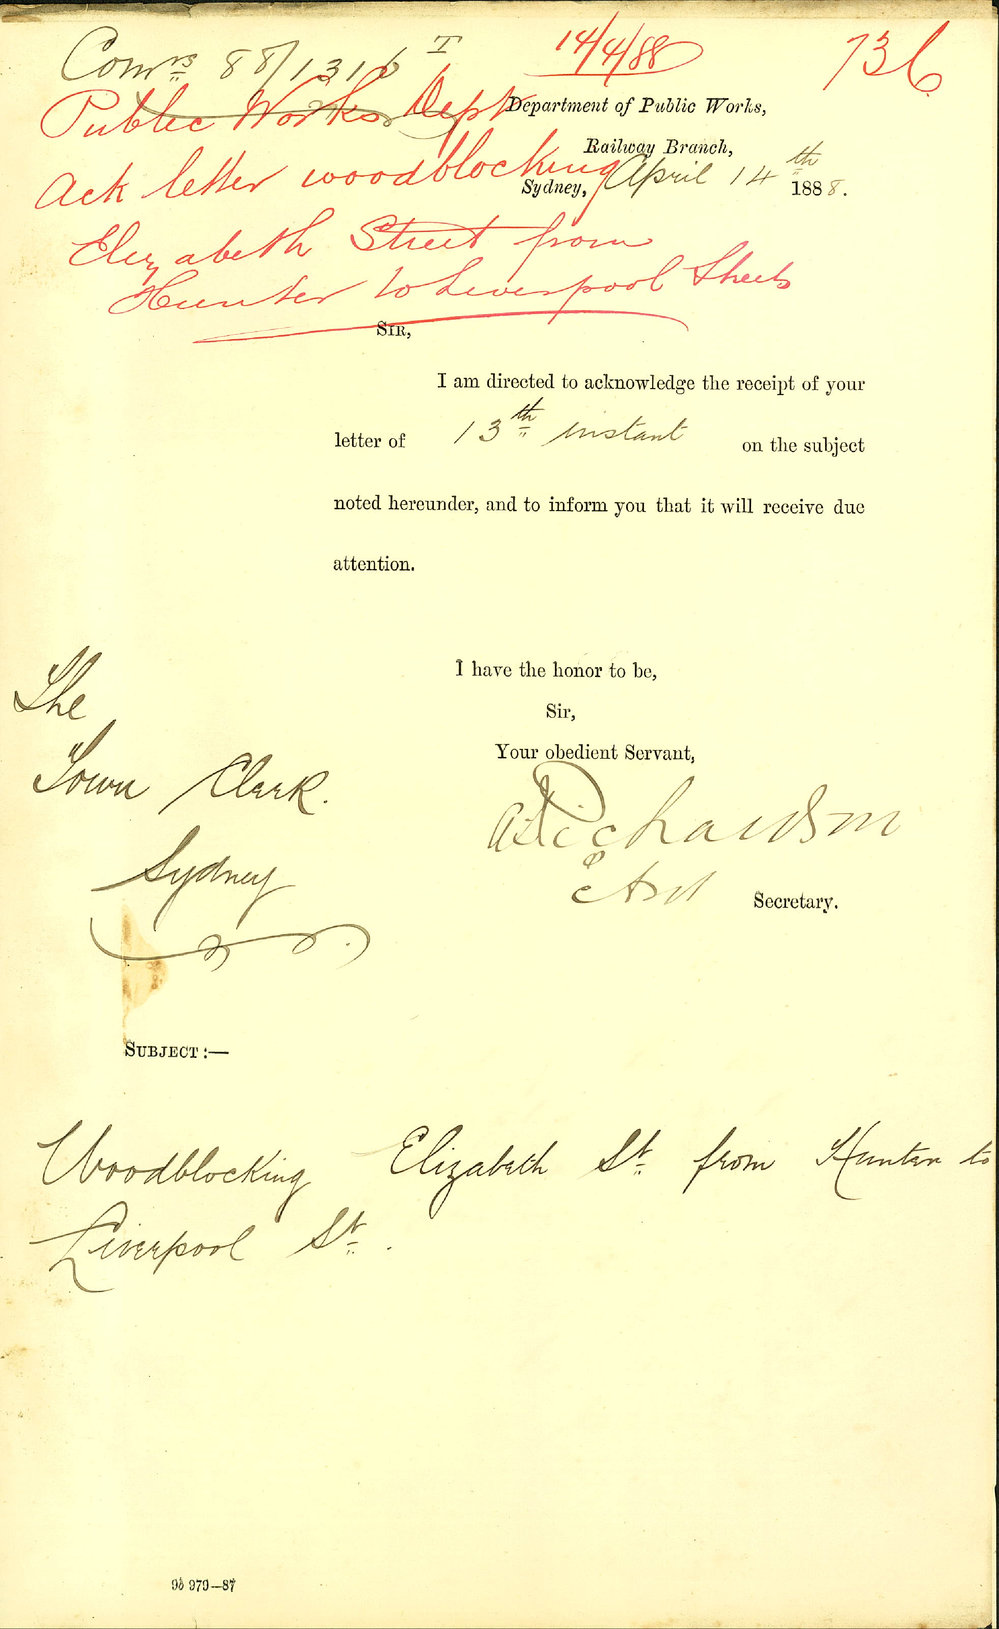 Comrs 88/1316 T
14/4/88
736
Public Works Dept
Department of Public Works,
Railway Branch,
Ack letter woodblocking
Sydney, April 14th 1888.
Elizabeth Street from
Hunter to Liverpool Streets
SIR,
I am directed to acknowledge the receipt of your
letter of 13th instant on the subject
noted hereunder, and to inform you that it will receive due
attention.
I have the honor to be,
Sir,
Your obedient Servant,
Richardson
Secretary.
The
Town Clerk.
Sydney
SUBJECT :—
Woodblocking Elizabeth St. from Hunter to
Liverpool St.
9b 979—87